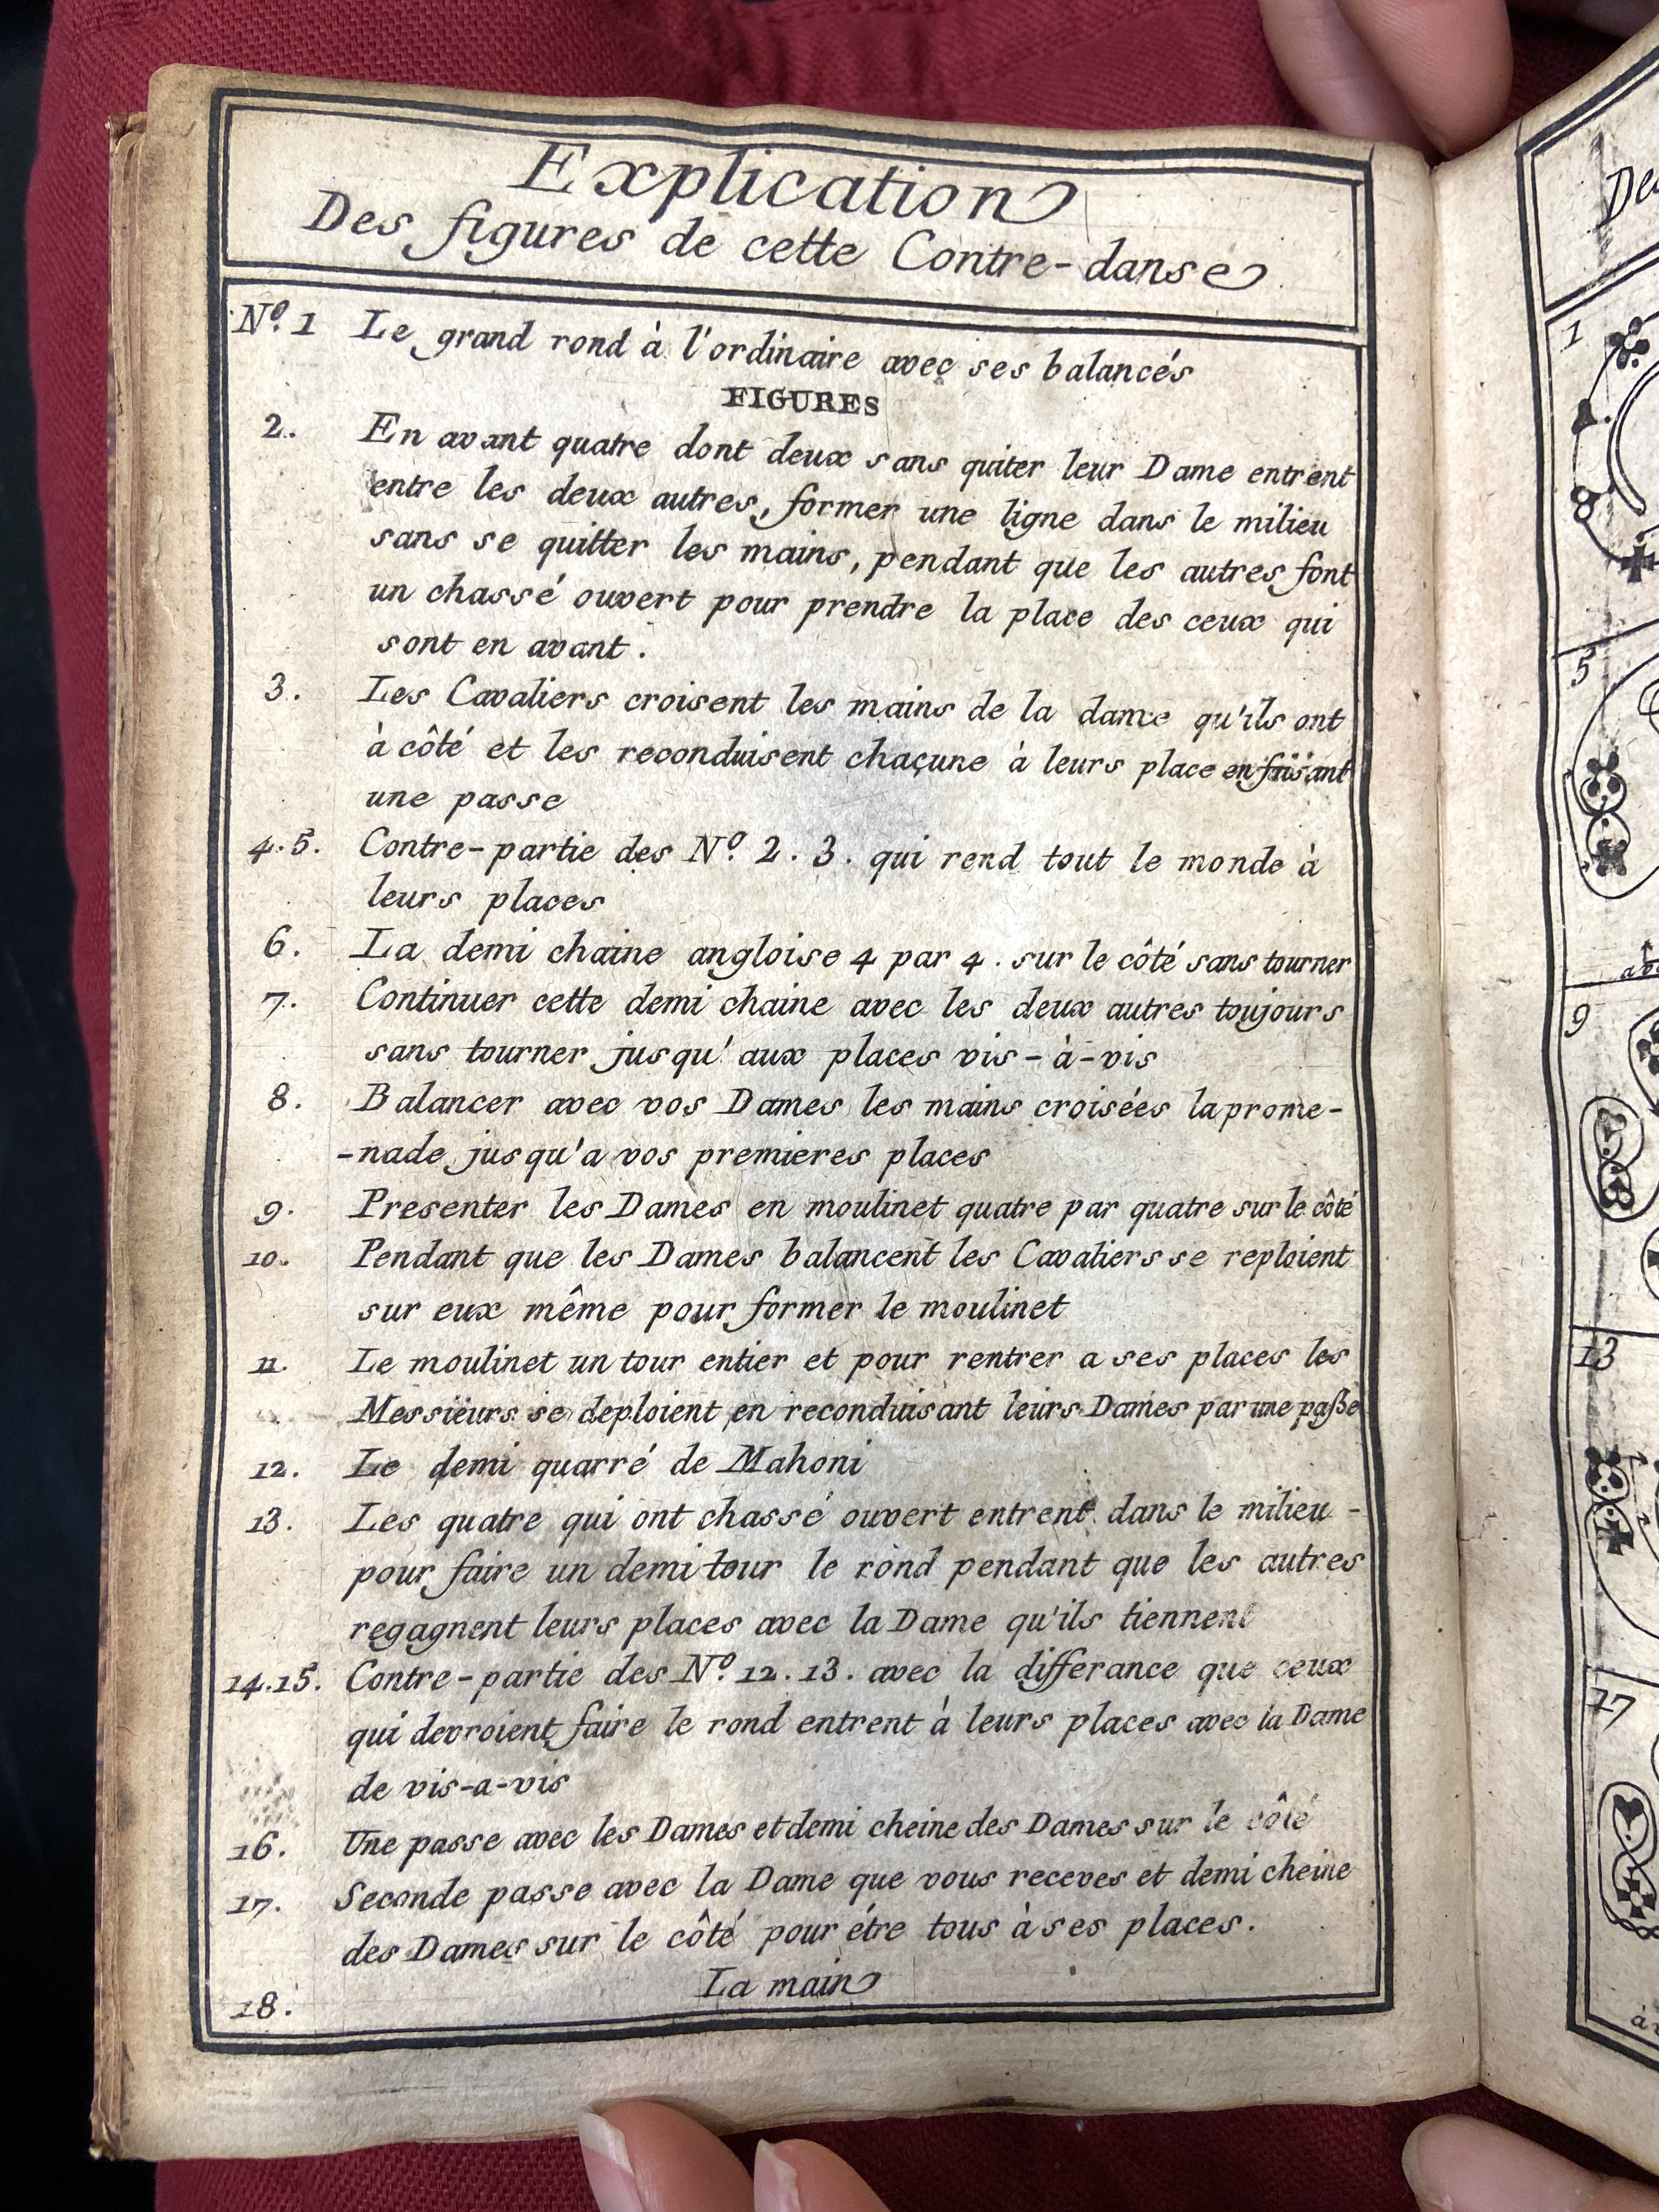 Explication
Des figures de cette Contre-danse
Nº. 1 Le grand rond à l'ordinaire avec ses balancés
FIGURES
2. En avant quatre dont deux sans quiter leur Dame entrent
entre les deux autres, former une ligne dans le milieu
sans se quitter les mains, pendant que les autres font
un chassé ouvert pour prendre la place des ceux qui
sont en avant.
3. Les Cavaliers croisent les mains de la dame qu'ils ont
à côté et les reconduisent chaçune à leurs place en faisant
une passe
4.5. Contre-partie des Nº. 2. 3. qui rend tout le monde à
leurs places
6. La demi chaine angloise 4 par 4. sur le côté sans tourner
7. Continuer cette demi chaine avec les deux autres toujours
sans tourner jusqu'aux places vis-à-vis
8. Balancer avec vos Dames les mains croisées la prome-
-nade jusqu'a vos premieres places
9. Presenter les Dames en moulinet quatre par quatre sur le côté
10. Pendant que les Dames balancent les Cavaliers se reploient
sur eux même pour former le moulinet
11. Le moulinet un tour entier et pour rentrer a ses places les
Messiëurs se deploient en reconduisant leurs Dames par une paße
12. Le demi quarré de Mahoni
13. Les quatre qui ont chassé ouvert entrent dans le milieu -
pour faire un demi tour le rond pendant que les autres
regagnent leurs places avec la Dame qu'ils tiennent
14.15. Contre-partie des Nº 12. 13. avec la differance que ceux
qui devroient faire le rond entrent à leurs places avec la Dame
de vis-a-vis
16. Une passe avec les Dames et demi cheine des Dames sur le côté
17. Seconde passe avec la Dame que vous receves et demi cheine
des Dames sur le côté pour étre tous à ses places.
18. La main
1
5
9
13
17